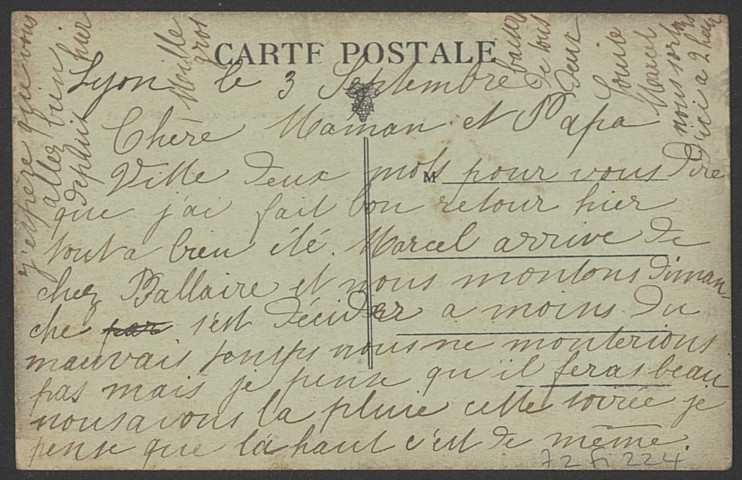 CARTE POSTALE
Lyon le 3 Septembre
Chère Maman et Papa
Ville deux mots pour vous dire
que j'ai fait bon retour hier
tout a bien été. Marcel arrive de
chez Ballaire et nous montons diman
che par s'est décider a moins du
mauvais temps nous ne monterions
pas mais je pense qu'il feras beau
nous avons la pluie cette soirée je
pense que la haut c'est de même.
M
j'espère que vous
allez bien
depuis hier
Mille
gros
baisers
de tous
deux
Louise
Marcel
nous sortons
d'ici a 2 heures
72 Fi 224